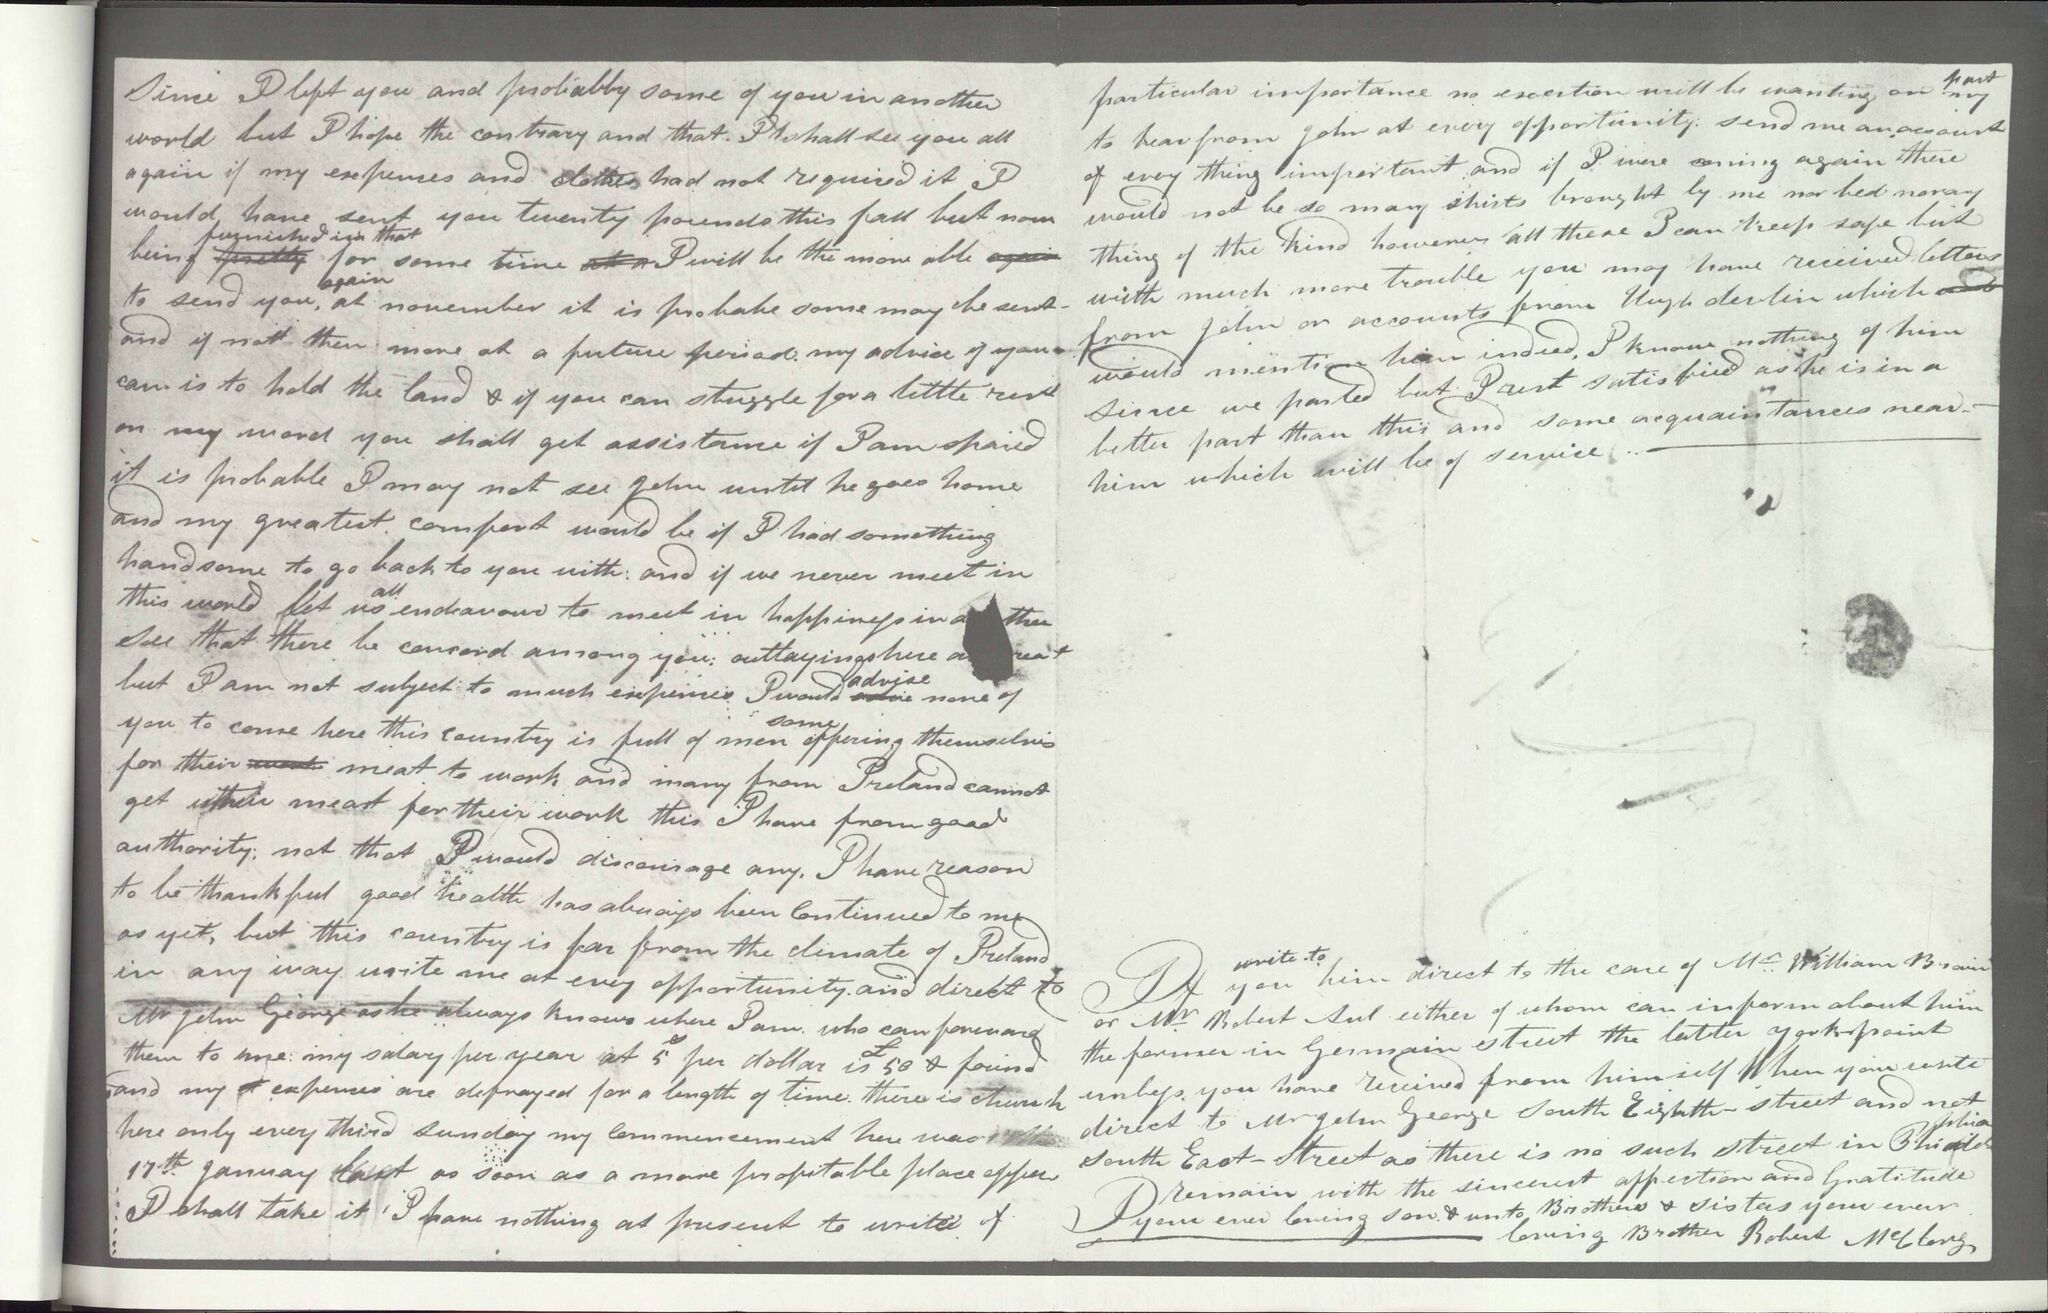 Since I left you and probabbly some of you in another
world but I hope the contrary and that I shall see you all
again if my expences and clothes had not required it I
would have sent you twenty pounds this fall but now
being pretty furnished in that for some time at a I will be the more able again
to send you, again at november it is probabe some may be sent
and if not then more at a future period: my advice if you
can is to hold the land & if you can struggle for a little rent
on my word you shall get assistance if I am spared
it is probable I may not see John until he goes home
and my greatest comfort would be if I had something
handsome to go back to you with: and if we never meet in
this world let us all endeavour to meet in happiness in a ther
see that there be concord among you: outlayings here a reat
but I am not subject to much expences I would advise none of
you to come here this country is full of men some offering themselves
for their work meat to work and many from Ireland cannot
get their meat for their work this I have from good
authority; not that I would discourage any. I have reason
to be thankful good health has always been Continued to me
as yet, but this country is far from the climate of Ireland
in any way write me at every opportunity and direct to
Mr John George as he always knows where I am. who can forward
them to me: my salary per year at 5s per dollar is £50 & found
and my expences are defrayed for a length of time. there is church
here only every third Sunday my Commencement here was
17th January last as soon as a more profitable place appear
I shall take it I have nothing at present to write of
particular importance no exertion will be wanting on my part
to hear from John at every opportunity: send me an account
of every thing important and if I were coming again there
would not be so many shirts brought by me nor bed nor any
thing of the kind however all these I can keep safe but
with much more trouble you may have received letters
from John or accounts from Hugh devlin which
would mention him indeed, I know nothing of him
since we parted but I rest satisfied as he is in a
better part than this and some acquaintances near
him which will be of service
If you write to him direct to the care of Mr William Brain
or Mr Robert Aul either of whom can inform about him
the former in Germain street the latter york-point
unless you have received from himself When you write
direct to Mr John George South Eighth-street and not
South East-street as there is no such street in Philadelphia
I remain with the sincerest affection and Gratitude
your ever loving son & unto Brothers & sisters your ever
loving Brother Robert McClorg